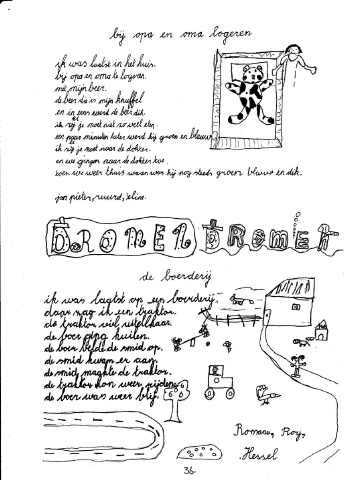 bij opa en oma logeren
ik was laatst in het huis.
bij opa en oma te logeren.
met mijn beer.
de beer die is mijn knuffel
en in eens werd de beer dik.
ik zij je moet niet zo veel eten.
een paar minuten later werd hij groen en blauw
ik zij je moet naar de dokter.
en we gingen naar de dokter toe.
toen we weer thuis waren was hij nog steeds groen blauw en dik.
jan pieter, ruurd, eline.
DROMEN DROMEN
de boerderij
ik was laatst op een boerderij.
daar zag ik een traktor.
de traktor viel uitelkaar.
de boer ging huilen.
de boer belde de smid op.
de smid kwam er aan.
de smid maakte de traktor.
de traktor kon weer rijden.
de boer was weer blij.
Romano, Roy,
Hessel
36.